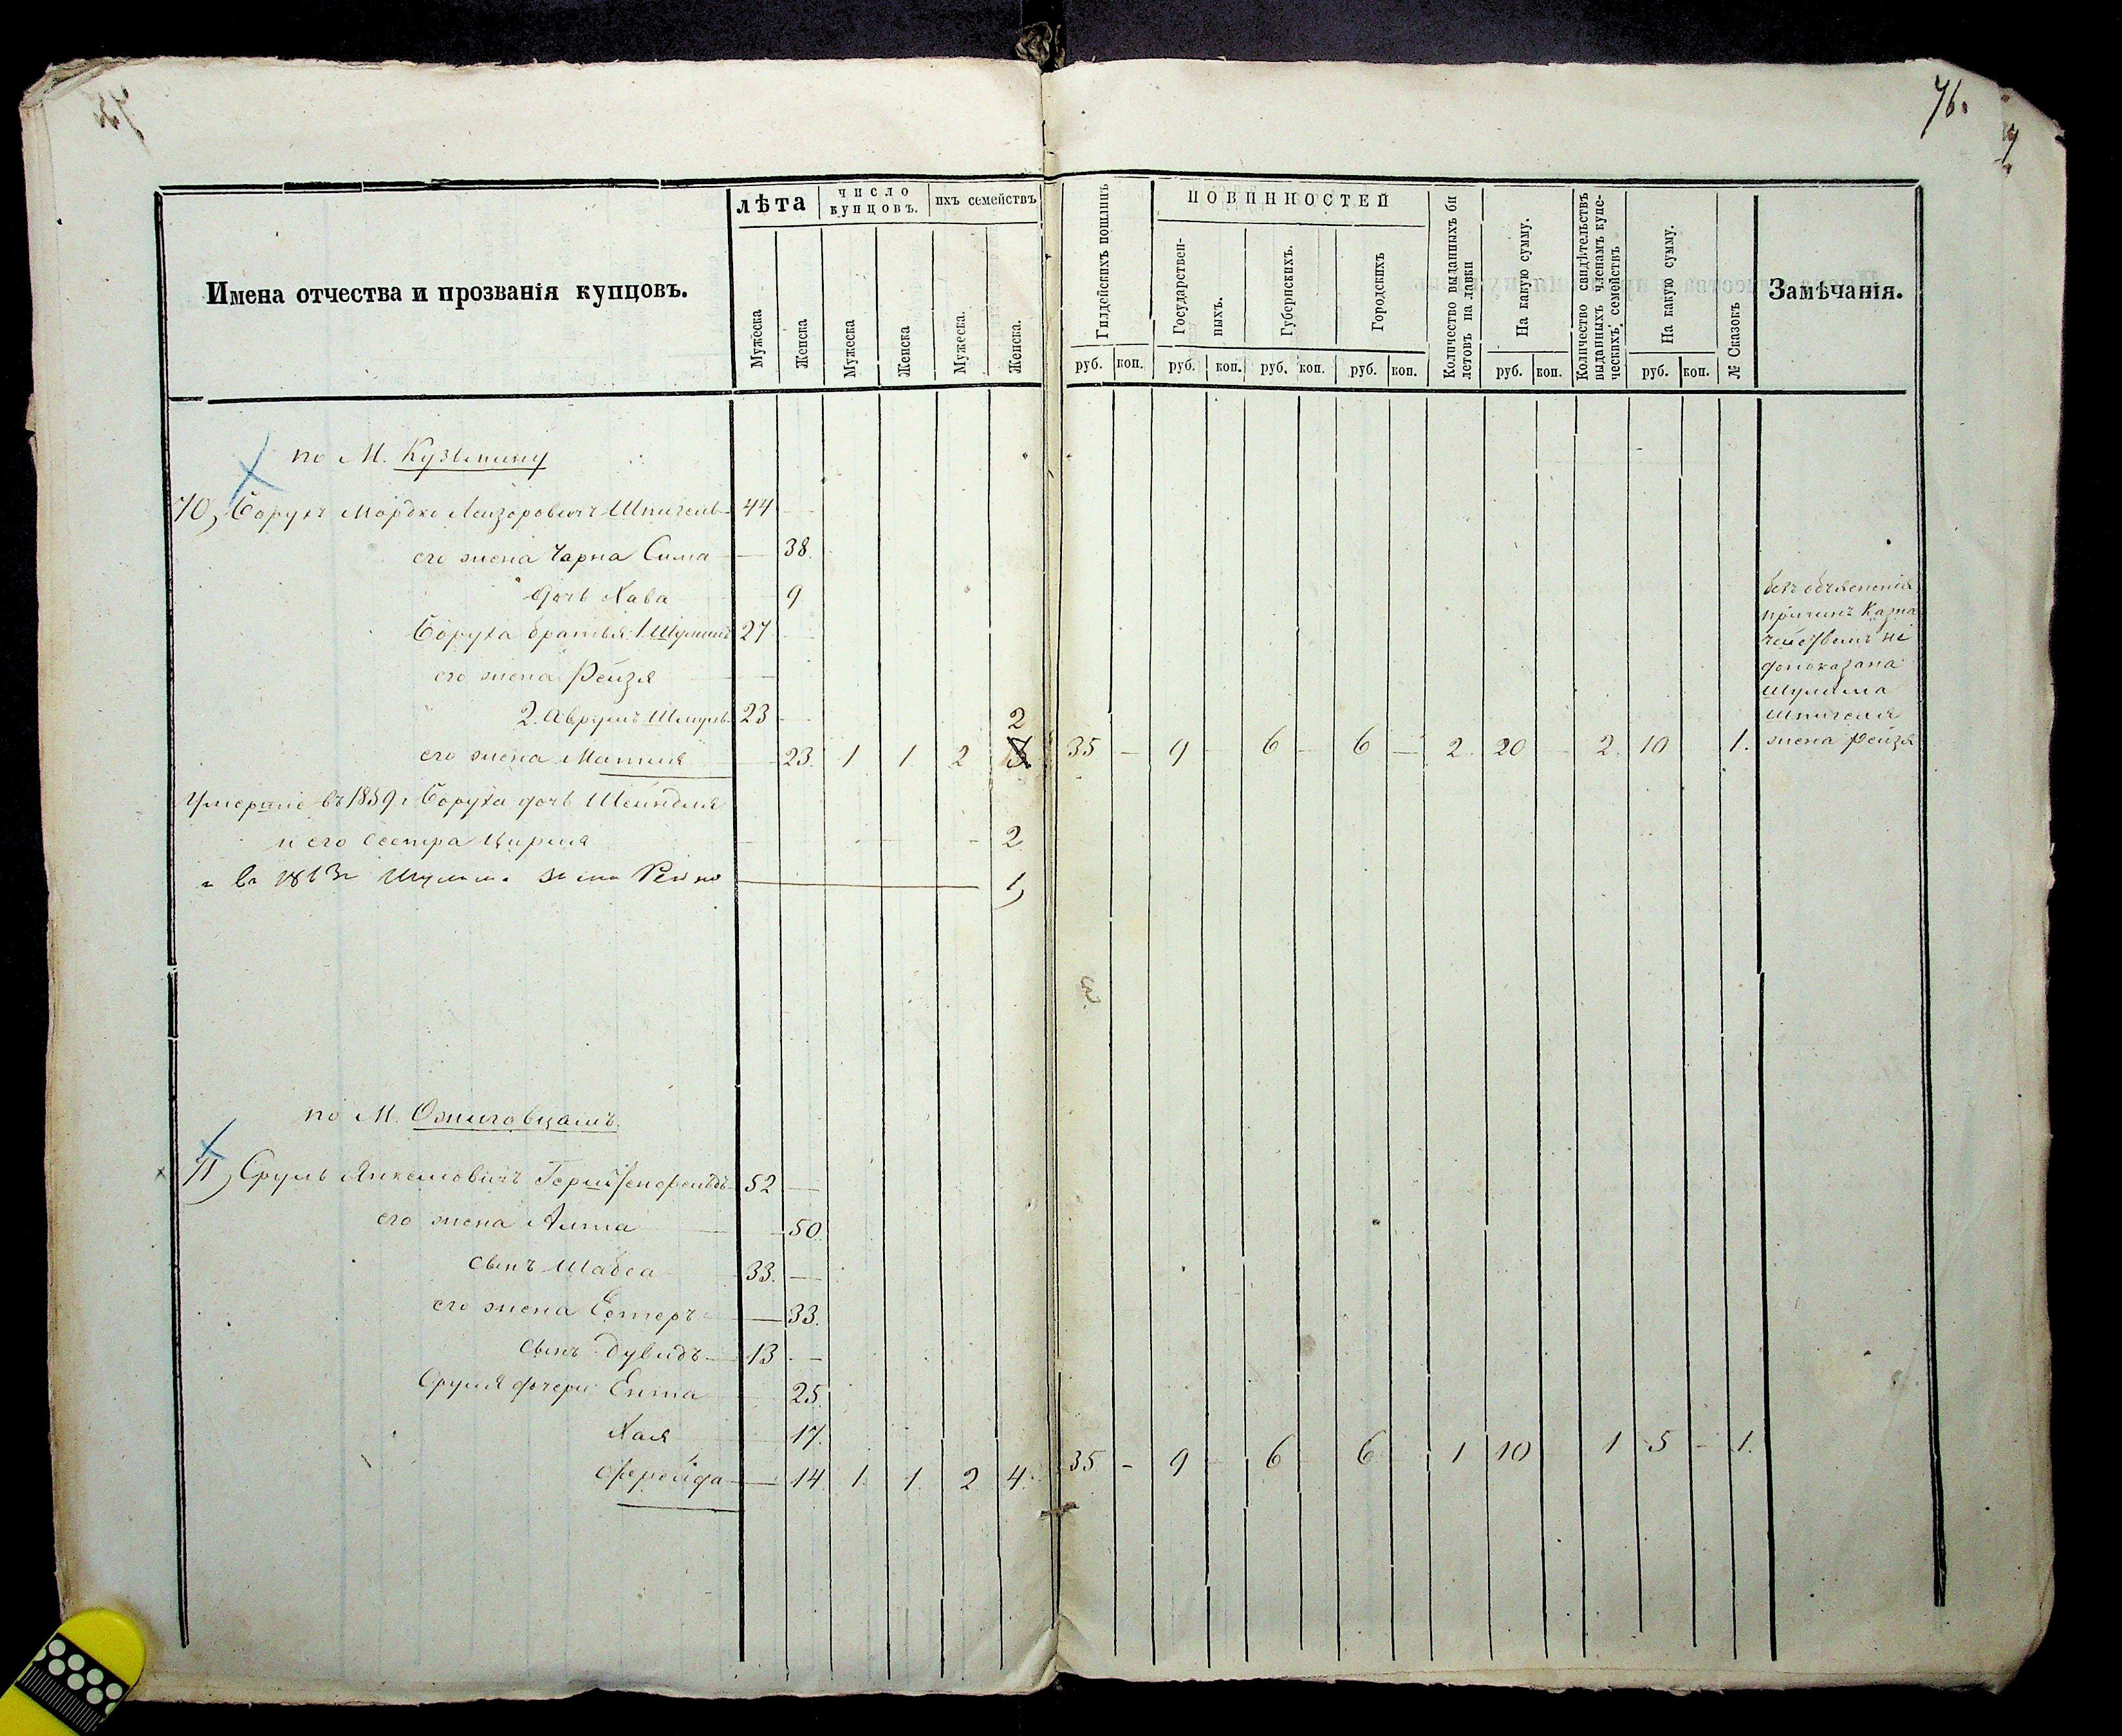 76.
Имена отчества и прозванія купцовъ.
лѣта
число купцовъ.
ихъ семействъ
Мужеска
Женска
Мужеска
Женска
Мужеска.
Женска.
Гилдейскихъ пошлинъ
ПОВИННОСТЕЙ
Государствен-
ныхъ.
Губернскихъ.
Городскихъ
Количество выданныхъ би
летовъ на лавки
На какую сумму.
Количество свидѣтельствъ
выданныхъ членамъ купе-
ческихъ семействъ
На какую сумму.
№ Сказокъ
Замѣчанія.
руб. коп. руб. коп. руб. коп. руб. коп. руб. коп. руб. коп.
по М. Кузьмину
70, Борухъ Мордко Лейзоровичъ Шпигель 44 —
его жена Чарна Сима — 38.
дочь Хава 9
Боруха братья: 1. Шулимъ 27 —
его жена Рейзя —
2. Аврумъ Шмуль 23 — 2
его жена Матля — 23. 1 1 2 35 — 9 — 6 — 6 — 2. 20 — 2. 10 1.
безъ объясненія
причинъ Казна
чействомъ не
допоказана
Шулима
Шпигеля
жена Рейзя
Умершіе въ 1859 г Боруха дочь Шейндля
и его сестра Цирля — 2
Шулима жена 1
по М. Ожиговцамъ.
71, Сруль Янкелевичъ 52 —
его жена Алта 50.
сынъ Шабса 33. —
его жена Естеръ — 33.
сынъ Дувидъ — 13 —
Сруля дочери Ента 25.
Хая 17.
Фрейда — 14 1. 1. 2 4. 35 — 9 — 6 — 6 — 1 10 1 5 — 1.